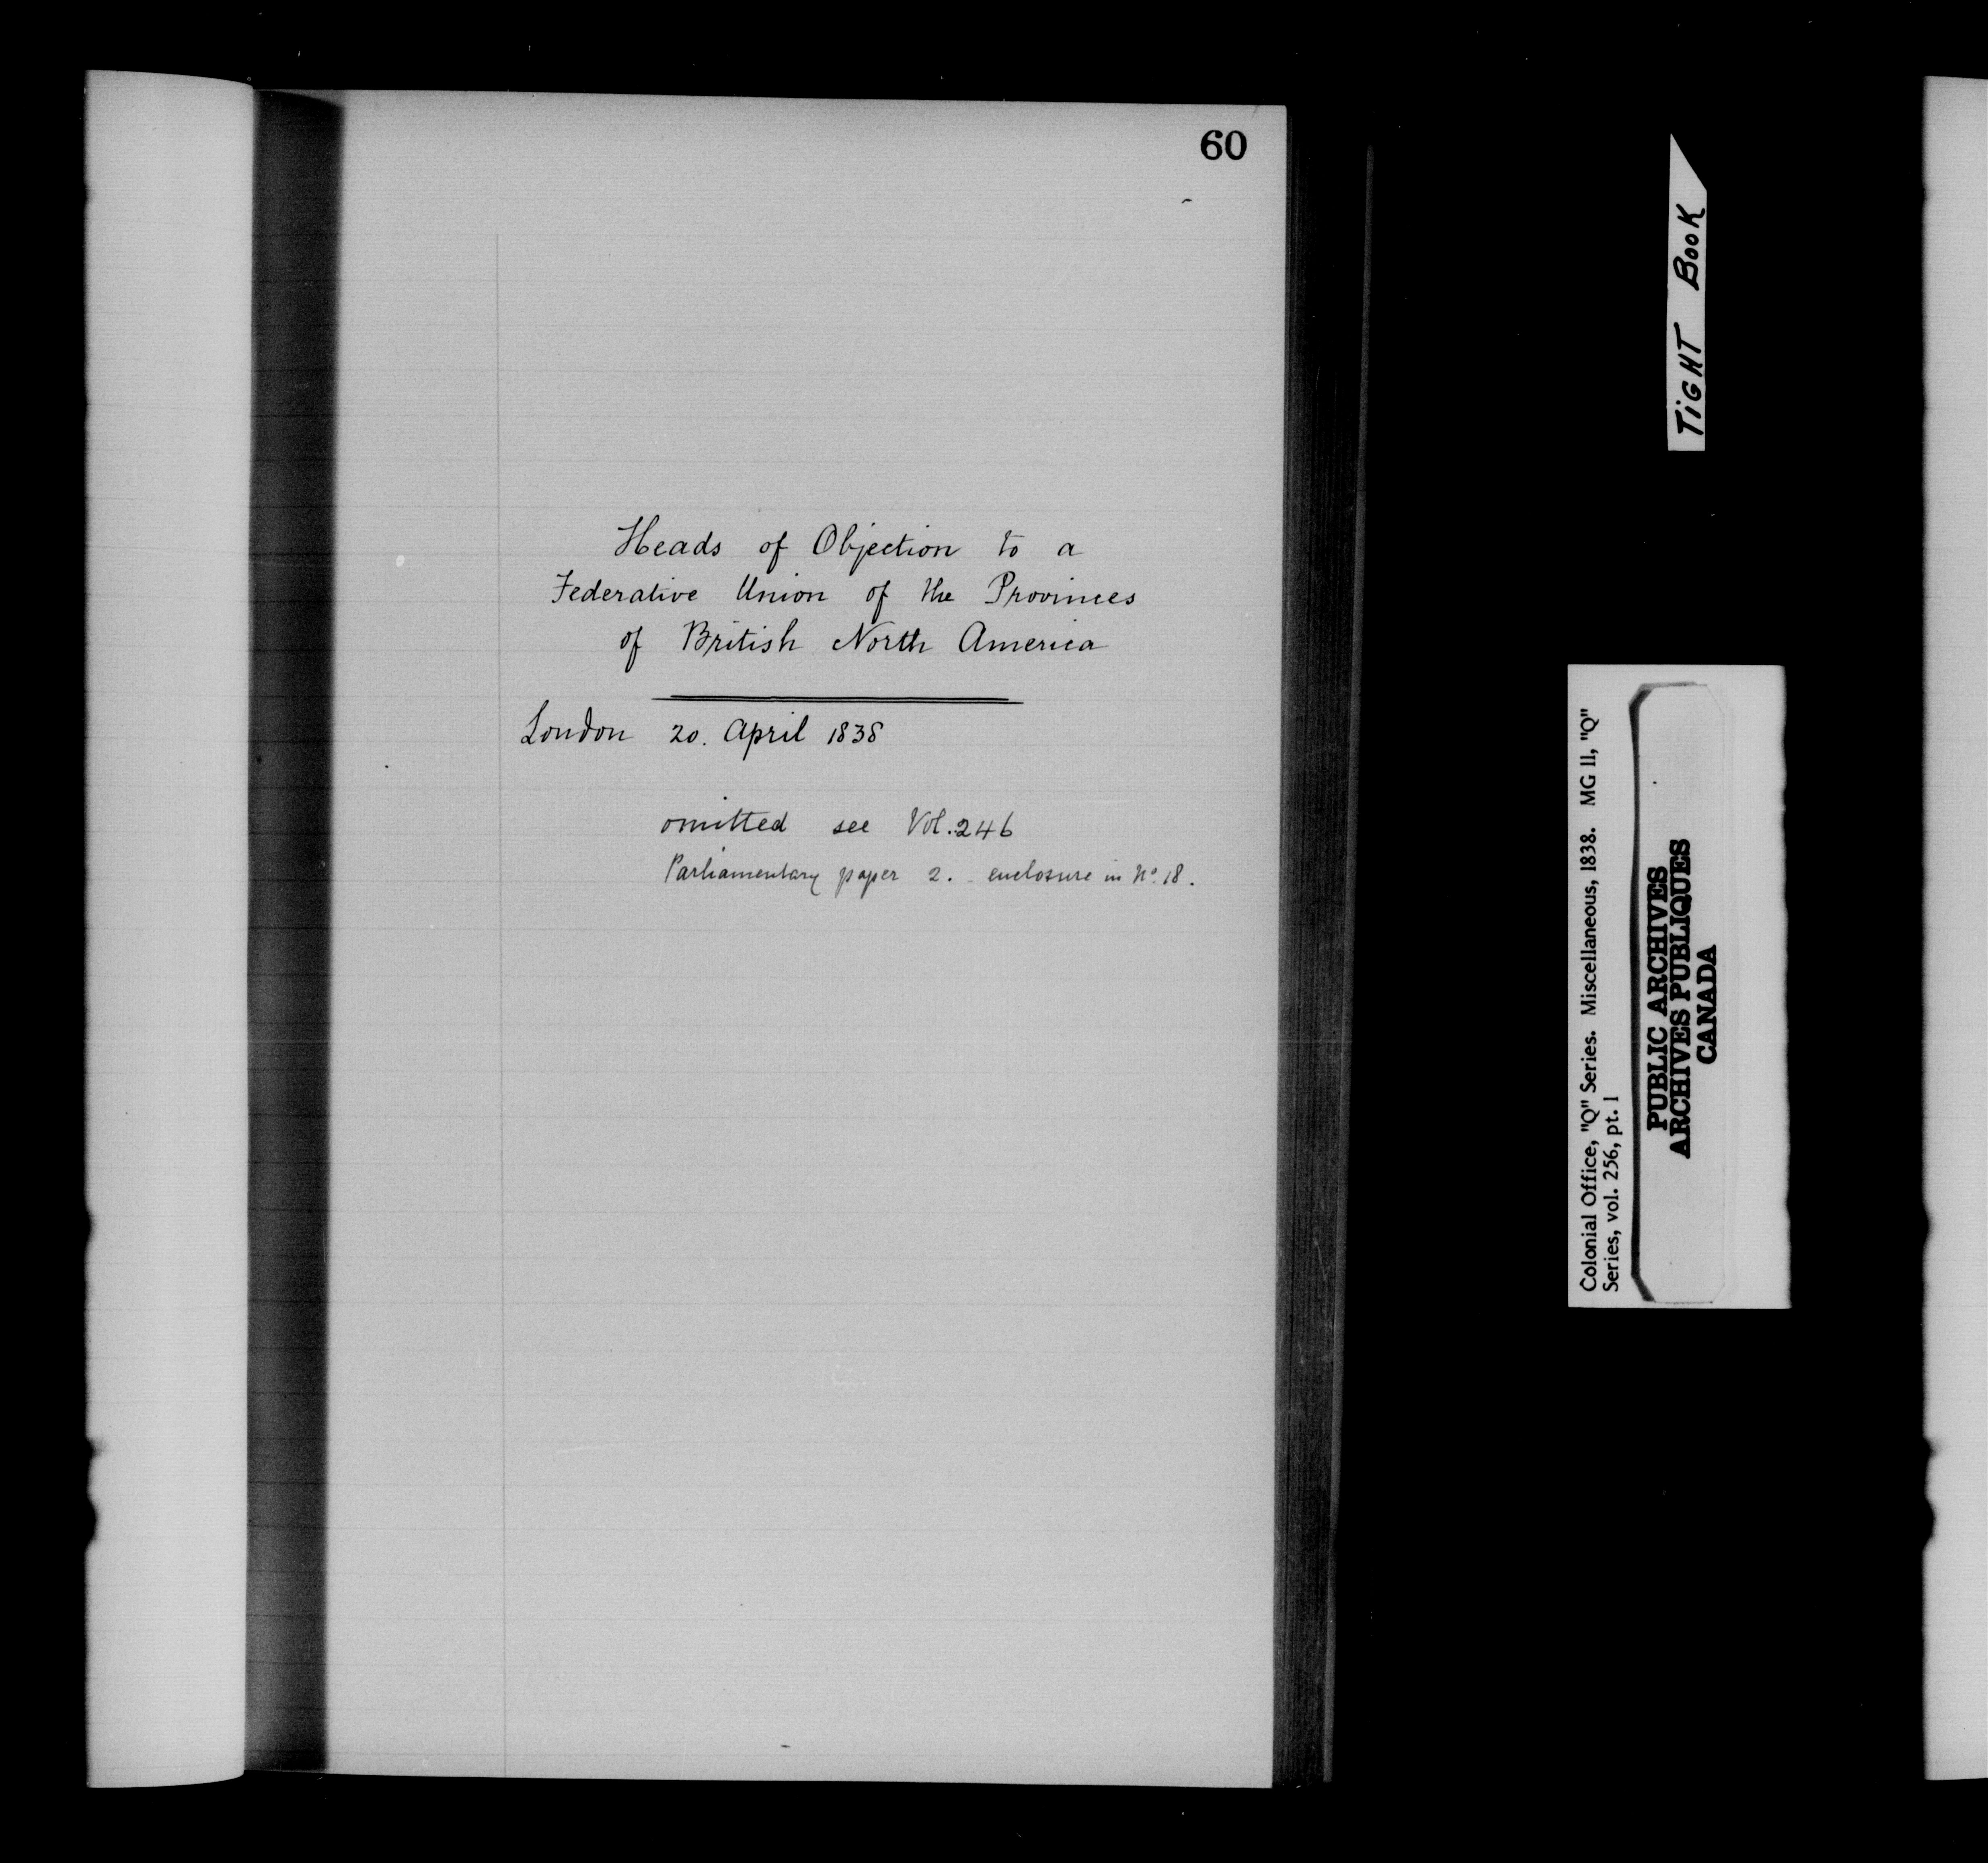 60
Heads of Objection to a
Federative Union of the Provinces
of British North America
London 20. April 1838
omitted see Vol. 246
Parliamentary paper 2. - enclosure in No. 18.
TIGHT BOOK
Colonial Office, "Q" Series. Miscellaneous, 1838. MG 11, "Q"
Series, vol. 256, pt. 1
PUBLIC ARCHIVES
ARCHIVES PUBLIQUES
CANADA